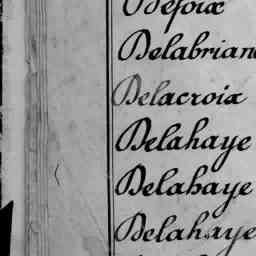 Defoix
Delabrian
Delacroix
Delahaye
Delahaye
Delahaye